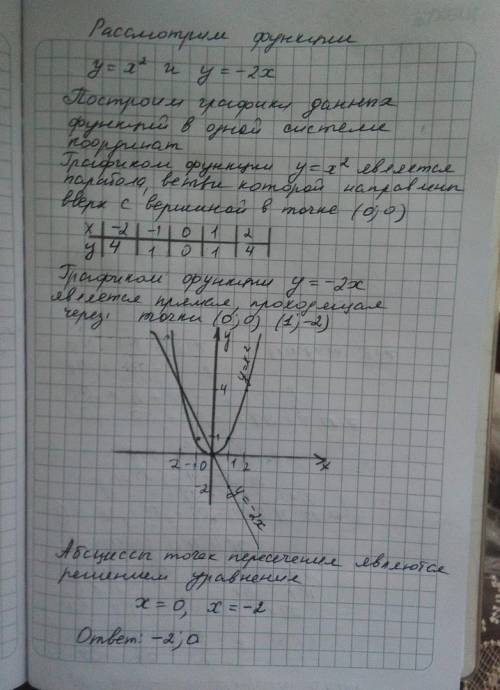 Рассмотрим функции
y = x² и y = -2x
Построим графики данных
функций в одной системе
координат
Графиком функции y = x² является
парабола, ветви которой направлены
вверх с вершиной в точке (0; 0)
x -2 -1 0 1 2
y 4 1 0 1 4
Графиком функции y = -2x
является прямая, проходящая
через точки (0; 0) (1; -2)
y
y=x²
4
1
2 -1 0 1 2 x
-2
y=-2x
Абсциссы точек пересечения являются
решением уравнения
x = 0, x = -2
Ответ: -2; 0